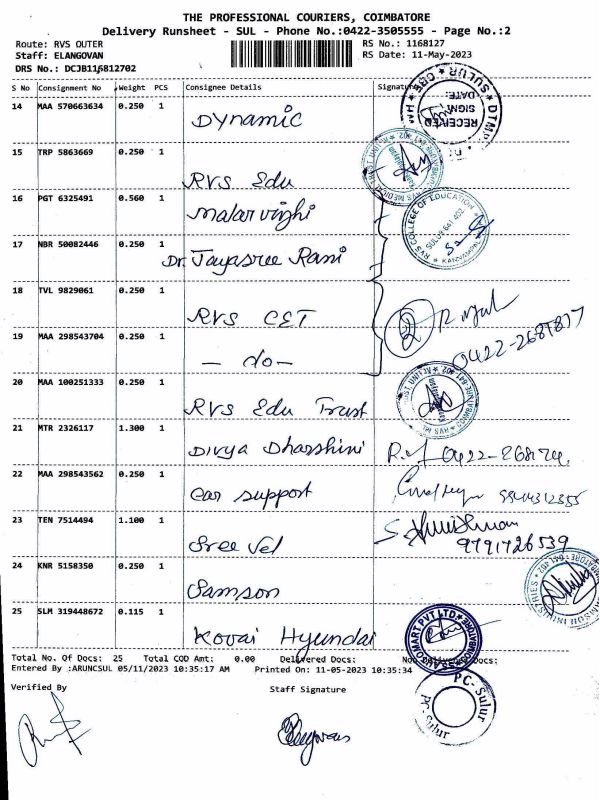 THE PROFESSIONAL COURIERS, COIMBATORE
Delivery Runsheet - SUL - Phone No.:0422-3505555 - Page No.:2
Route: RVS OUTER RS No.: 1168127
Staff: ELANGOVAN RS Date: 11-May-2023
DRS No.: DCJB116812702
S No Consignment No Weight PCS Consignee Details Signature
14 MAA 570663634 0.250 1 Dynamic
15 TRP 5863669 0.250 1 RVS Edu
16 PGT 6325491 0.560 1 Malar vizhi
17 NBR 50082446 0.250 1 Dr. Jayasree Rani
18 TVL 9829061 0.250 1 RVS CET
19 MAA 298543704 0.250 1 — do —
0422-2687877
20 MAA 100251333 0.250 1 RVS Edu Trust
21 MTR 2326117 1.300 1 Divya Dharshini
22 MAA 298543562 0.250 1 Car support
23 TEN 7514494 1.100 1 Sree Vel 9791726539
24 KNR 5158350 0.250 1 Samson
25 SLM 319448672 0.115 1 Kovai Hyundai
RECEIVED
SIGN:
DATE:
RVS COLLEGE OF EDUCATION
SULUR 641 402
KANNAMPALAYAM
Total No. Of Docs: 25 Total COD Amt: 0.00 Delivered Docs: Non Delivered Docs:
Entered By :ARUNCSUL 05/11/2023 10:35:17 AM Printed On: 11-05-2023 10:35:34
PC- Sulur
PC-Sulur
Verified By Staff Signature